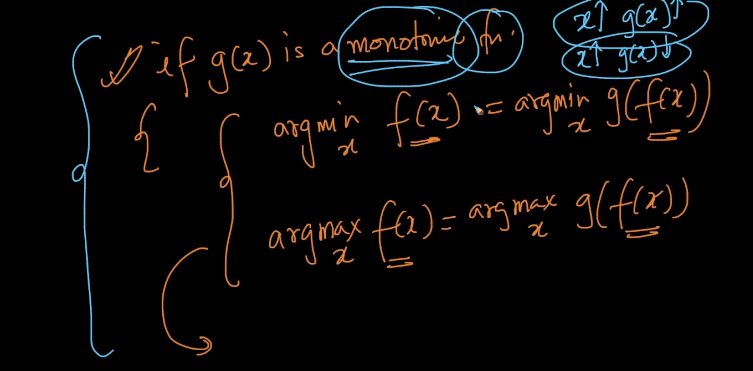 x↑ g(x)↑
if g(x) is a monotonic fn.
x↑ g(x)↓
argmin x f(x) = argmin x g(f(x))
argmax x f(x) = argmax x g(f(x))